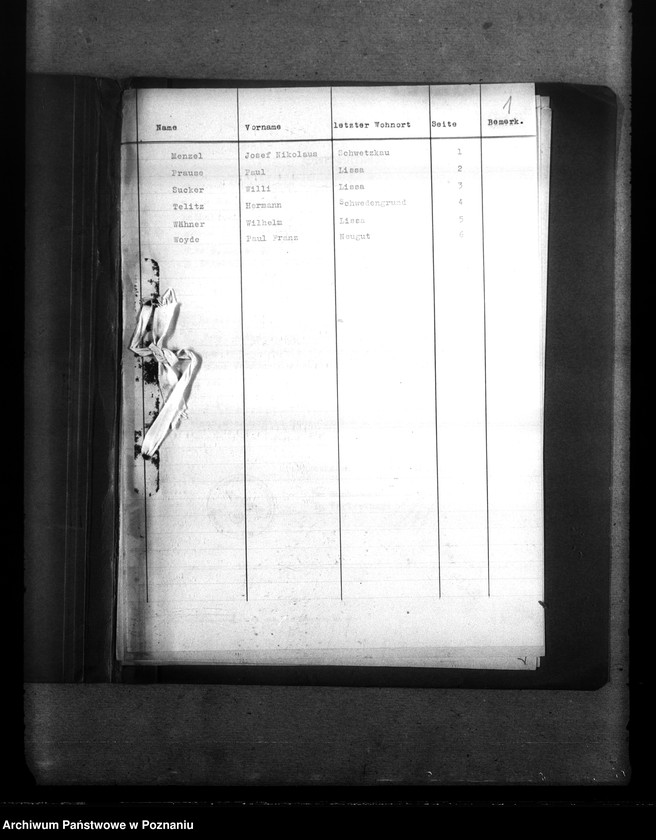 1
Name Vorname letzter Wohnort Seite Bemerk.
Menzel Josef Nikolaus Schwetzkau 1
Prause Paul Lissa 2
Sucker Willi Lissa 3
Telitz Hermann Schwedengrund 4
Wähner Wilhelm Lissa 5
Woyde Paul Franz Neugut 6
Archiwum Państwowe w Poznaniu